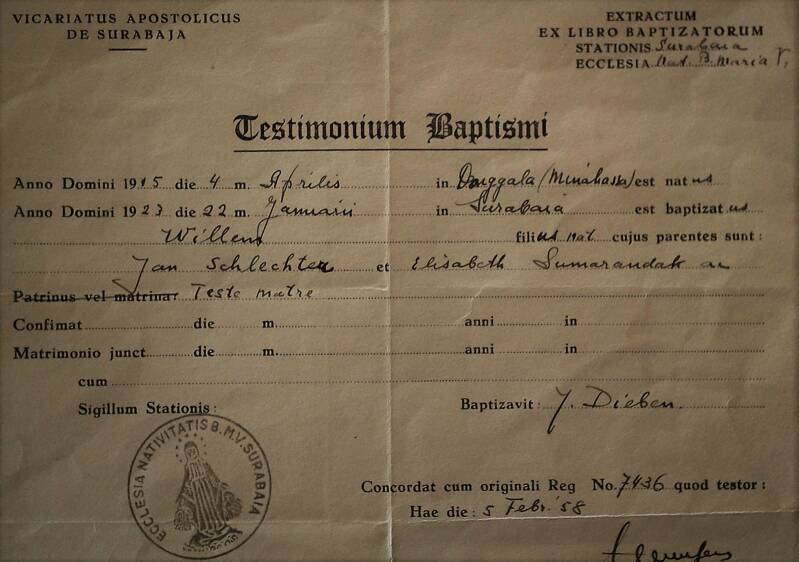 VICARIATUS APOSTOLICUS
DE SURABAJA
EXTRACTUM
EX LIBRO BAPTIZATORUM
STATIONIS Surabaia
ECCLESIA Nat. B. Maria V.
Testimonium Baptismi
Anno Domini 1915 die 4 m. Aprilis in Donggala (Minahassa) est natus
Anno Domini 1923 die 22 m. Januarii in Surabaia est baptizatus
Willem filius nat. cujus parentes sunt :
Jan Schlechter et Elisabeth Sumarandak
Patrinus vel matrina Teste matre
Confimat die m. anni in
Matrimonio junct. die m. anni in
cum
Sigillum Stationis : Baptizavit : J. Dieben.
ECCLESIA NATIVITATIS B.M.V. SURABAIA
Concordat cum originali Reg No. 7436 quod testor :
Hae die : 5 Febr. '58